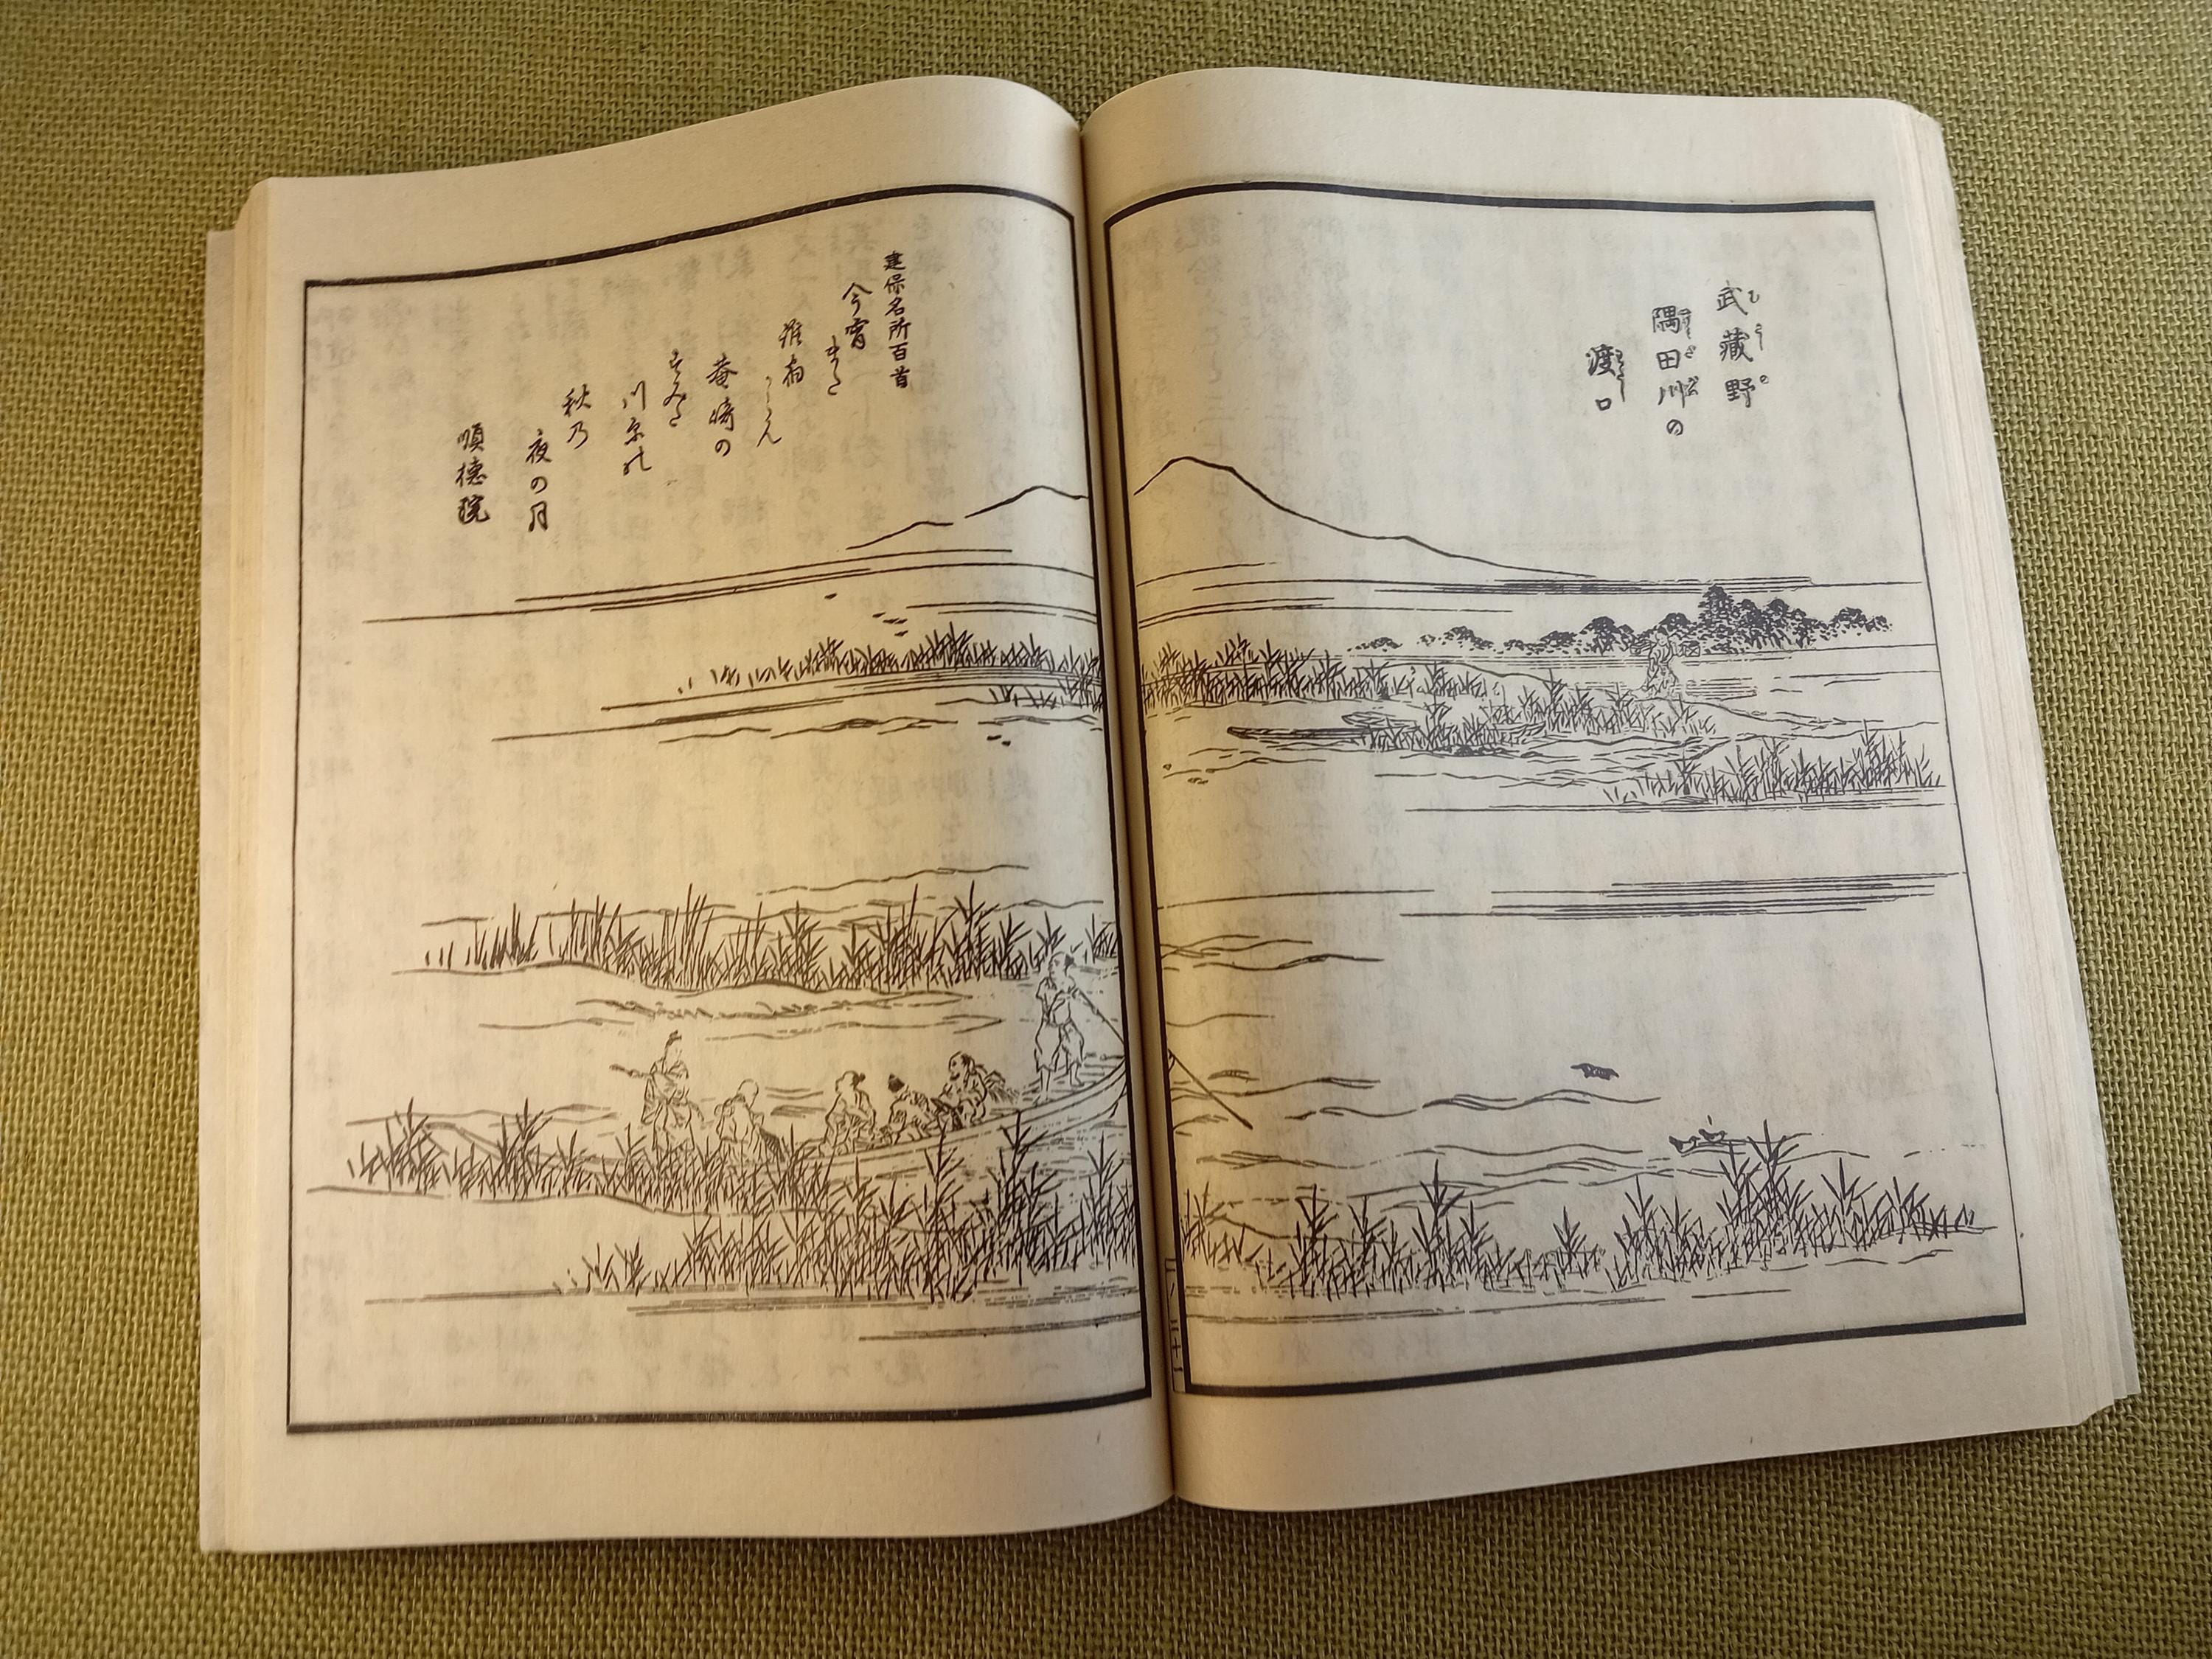 武藏野
隅田川の
渡口
建保名所百首
今宵
また
誰宿
からん
庵崎の
すみた
川原の
秋乃
夜の月
順徳院